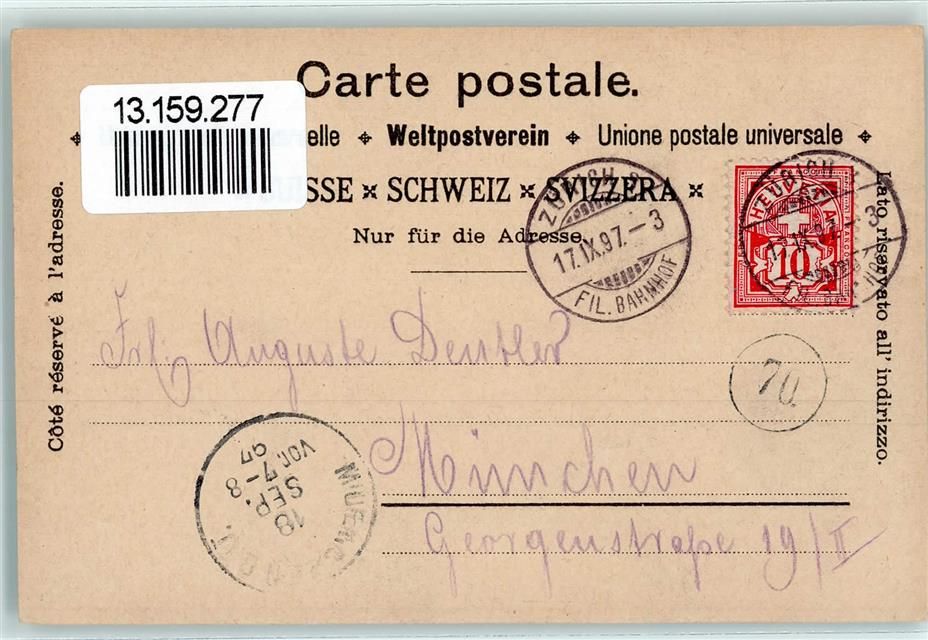 Carte postale.
13.159.277
elle Weltpostverein Unione postale universale
SSE SCHWEIZ SVIZZERA
Nur für die Adresse.
Côté réservé à l'adresse.
Lato riservato all' indirizzo.
ZÜRICH
17.IX.97.–3
FIL. BAHNHOF
HELVETIA
10
Frl. Auguste Deutler
70.
München
Georgenstraße 19/II
18
SEP.
7–8
VOR. 97